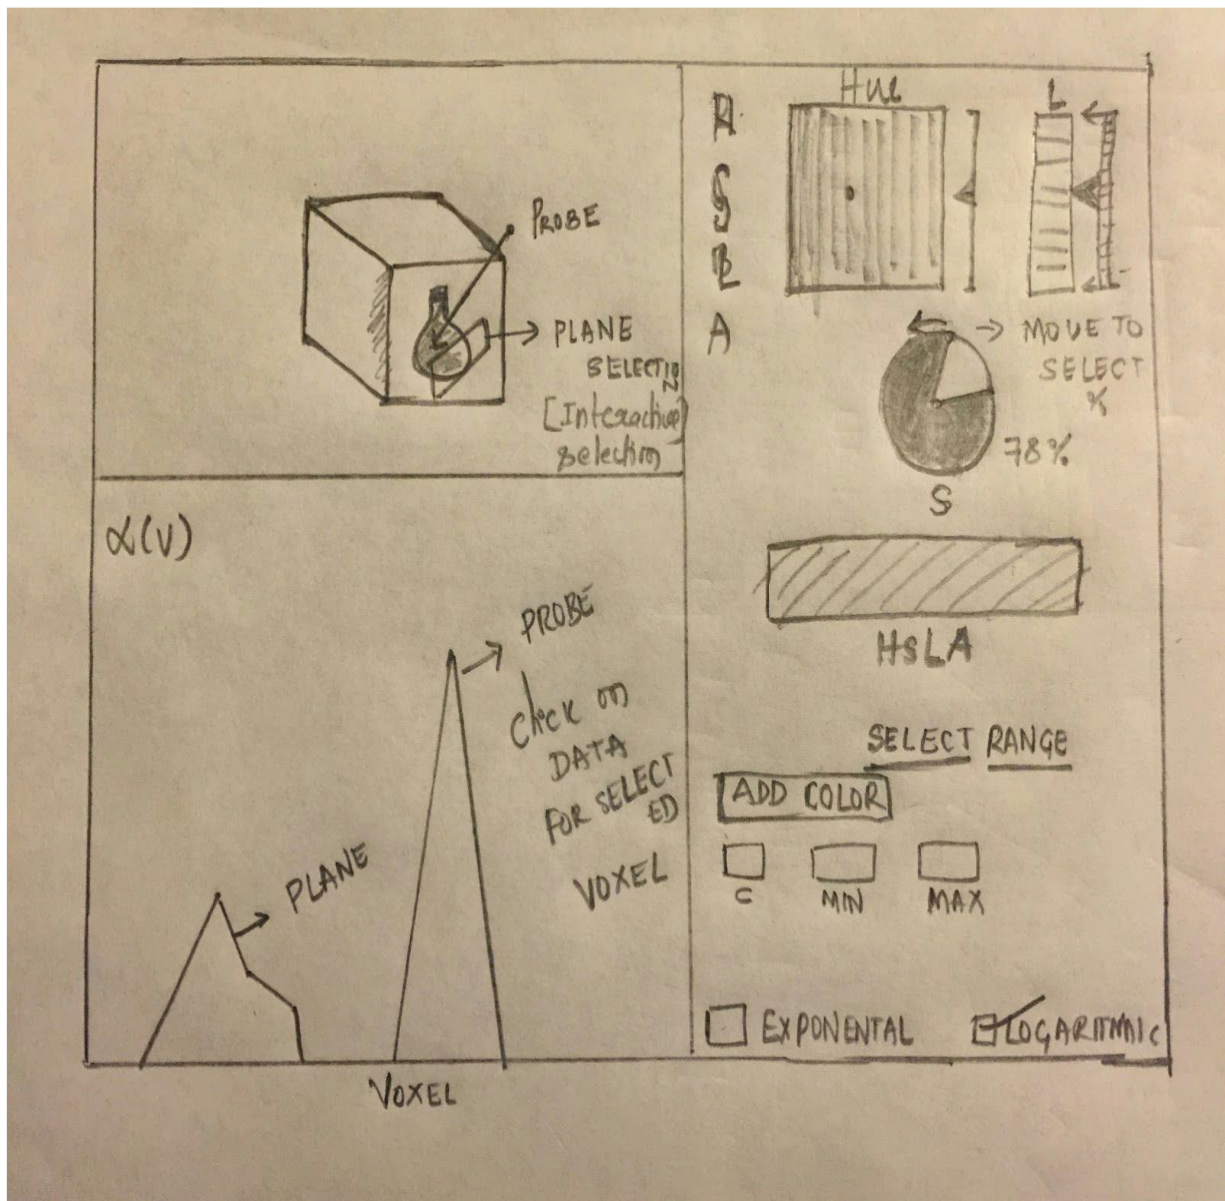 PROBE
PLANE
SELECTION
[Interactive]
selection
α(V)
PROBE
Click on
DATA
FOR SELECT
ED
VOXEL
PLANE
VOXEL
Hue
L
H
S
L
A
MOVE TO
SELECT
%
78%
S
HSLA
SELECT RANGE
ADD COLOR
C MIN MAX
EXPONENTAL
LOGARITMAIC